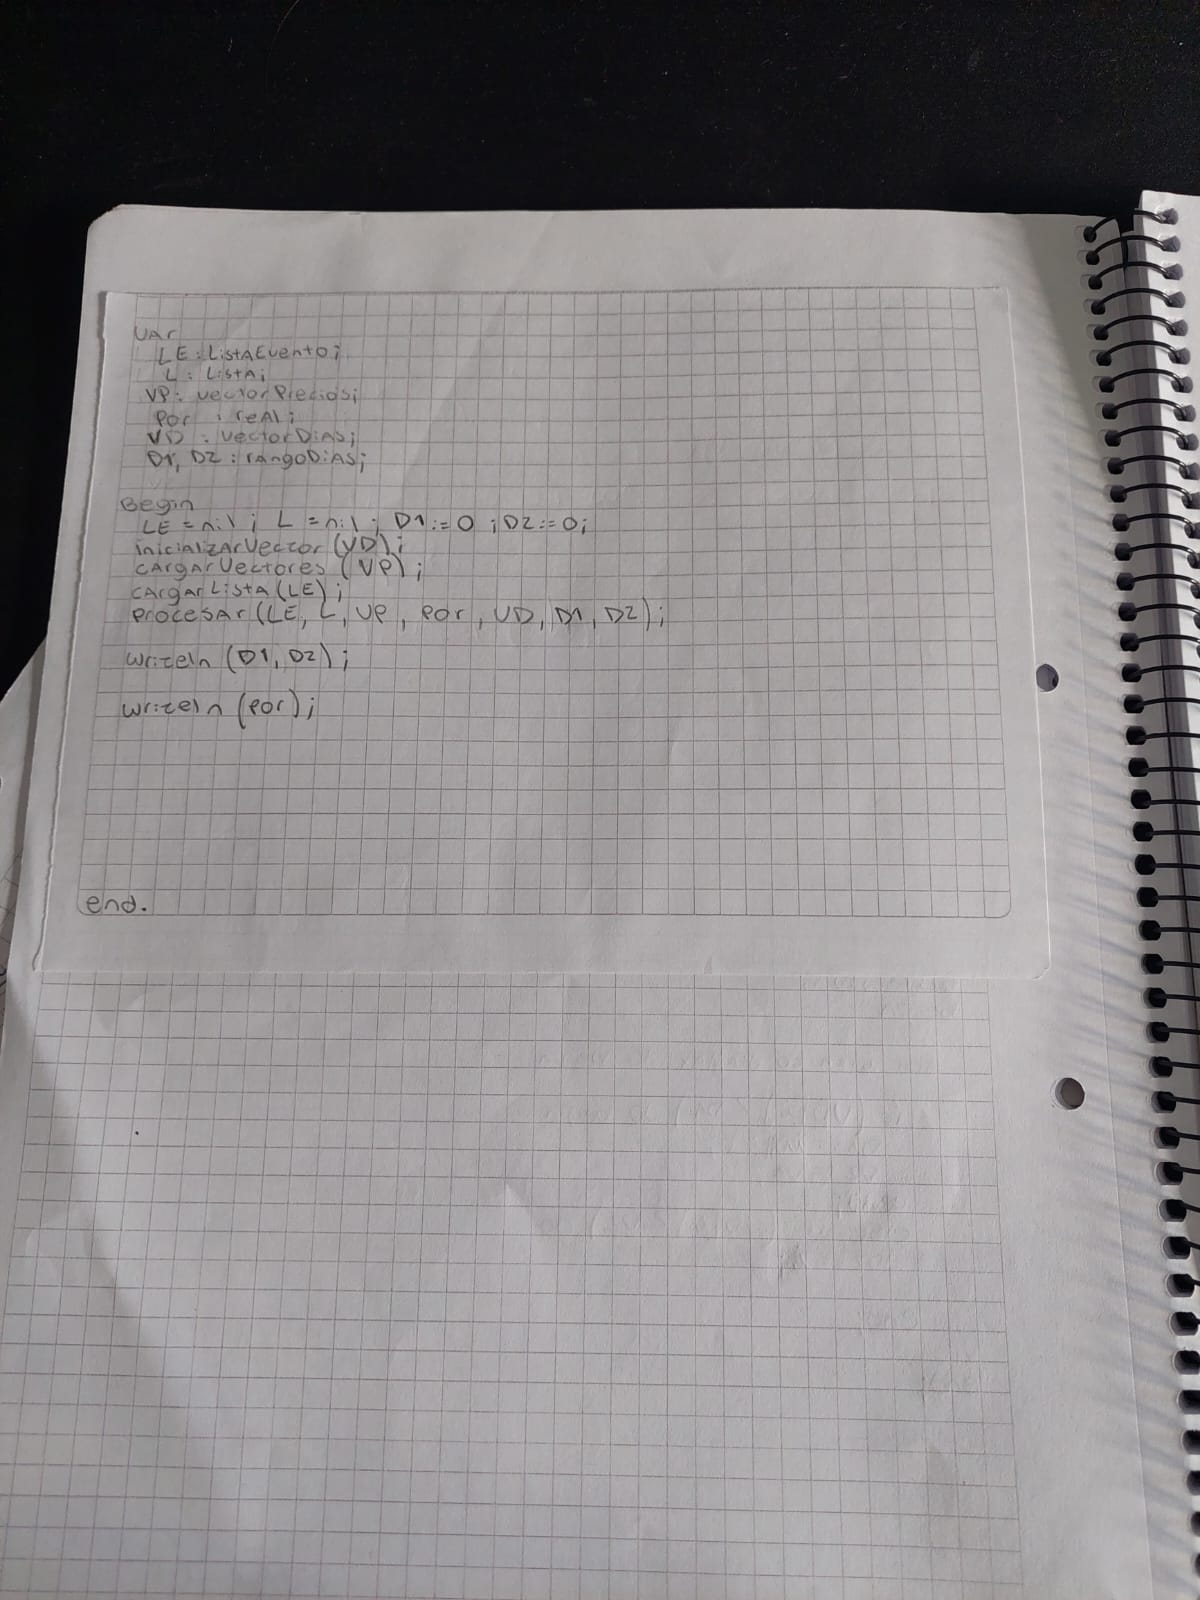 VAr
LE : ListAEvento;
L : ListA;
VP : vectorPrecios;
Por : reAl;
VD : VectorDiAs;
D1, D2 : rAngoDiAs;
Begin
LE = nil ; L = nil ; D1 := 0 ; D2 := 0;
inicializArVector (VD);
cArgArVectores (VP);
cArgArListA (LE);
ProcesAr (LE, L, VP, Por, VD, D1, D2);
writeln (D1, D2);
writeln (Por);
end.